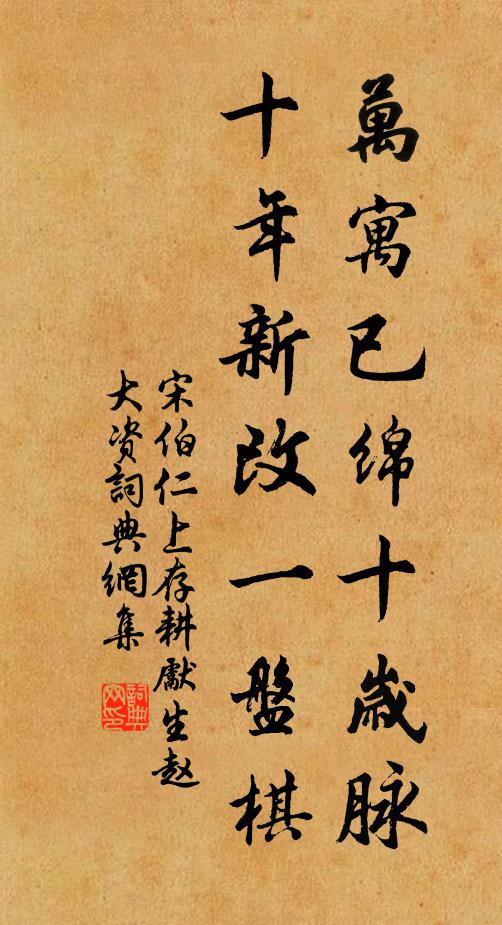 萬寓已綿十歲脉
十年新改一盤棋
宋伯仁上存耕獻生赵
大资詞典網集
詞典网印